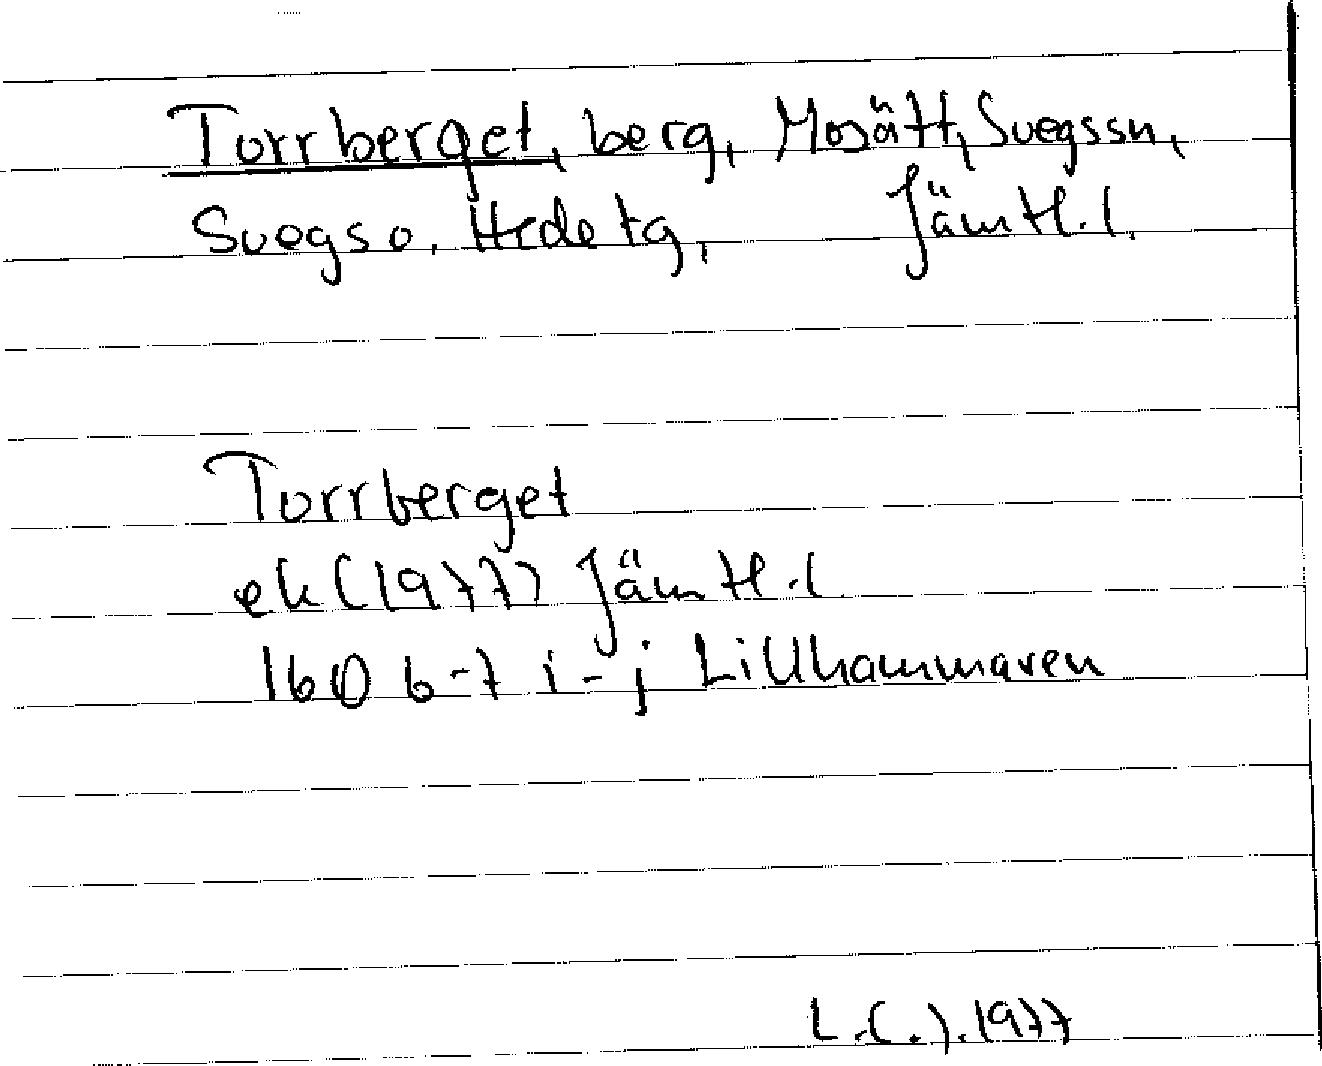 Torrberget, berg, Mosätt, Svegssn,
Svegs o. Hrde tg, Jämtl. l.
Torrberget
ek (1977) Jämtl. l.
160 6-7 i-j Lillhammaren
L.C.J. 1977